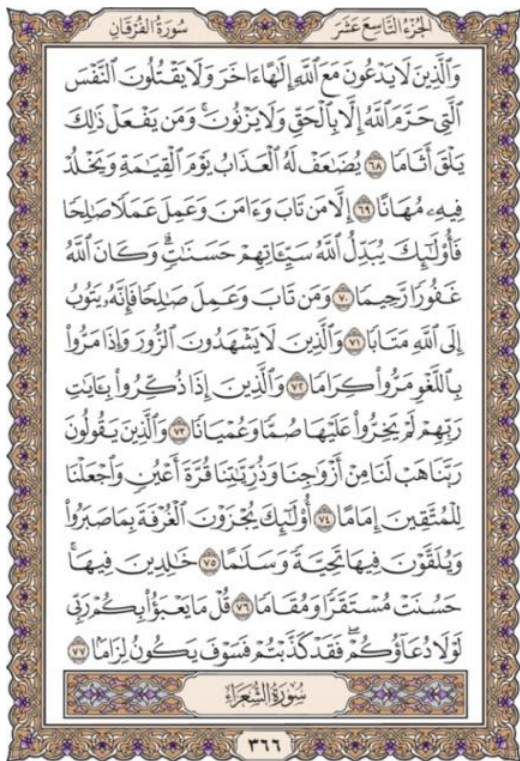 سُورَةُ الْفُرْقَانِ الجُزْءُ التَّاسِعَ عَشَرَ
وَالَّذِينَ لَا يَدْعُونَ مَعَ اللَّهِ إِلَٰهًا ءَاخَرَ وَلَا يَقْتُلُونَ النَّفْسَ
الَّتِي حَرَّمَ اللَّهُ إِلَّا بِالْحَقِّ وَلَا يَزْنُونَ ۚ وَمَن يَفْعَلْ ذَٰلِكَ
يَلْقَ أَثَامًا ٦٨ يُضَٰعَفْ لَهُ الْعَذَابُ يَوْمَ الْقِيَٰمَةِ وَيَخْلُدْ
فِيهِۦ مُهَانًا ٦٩ إِلَّا مَن تَابَ وَءَامَنَ وَعَمِلَ عَمَلًا صَٰلِحًا
فَأُو۟لَٰٓئِكَ يُبَدِّلُ اللَّهُ سَيِّـَٔاتِهِمْ حَسَنَٰتٍ ۗ وَكَانَ اللَّهُ
غَفُورًا رَّحِيمًا ٧٠ وَمَن تَابَ وَعَمِلَ صَٰلِحًا فَإِنَّهُۥ يَتُوبُ
إِلَى اللَّهِ مَتَابًا ٧١ وَالَّذِينَ لَا يَشْهَدُونَ الزُّورَ وَإِذَا مَرُّوا۟
بِاللَّغْوِ مَرُّوا۟ كِرَامًا ٧٢ وَالَّذِينَ إِذَا ذُكِّرُوا۟ بِـَٔايَٰتِ
رَبِّهِمْ لَمْ يَخِرُّوا۟ عَلَيْهَا صُمًّا وَعُمْيَانًا ٧٣ وَالَّذِينَ يَقُولُونَ
رَبَّنَا هَبْ لَنَا مِنْ أَزْوَٰجِنَا وَذُرِّيَّٰتِنَا قُرَّةَ أَعْيُنٍ وَاجْعَلْنَا
لِلْمُتَّقِينَ إِمَامًا ٧٤ أُو۟لَٰٓئِكَ يُجْزَوْنَ الْغُرْفَةَ بِمَا صَبَرُوا۟
وَيُلَقَّوْنَ فِيهَا تَحِيَّةً وَسَلَٰمًا ٧٥ خَٰلِدِينَ فِيهَا ۚ
حَسُنَتْ مُسْتَقَرًّا وَمُقَامًا ٧٦ قُلْ مَا يَعْبَؤُا۟ بِكُمْ رَبِّي
لَوْلَا دُعَآؤُكُمْ ۖ فَقَدْ كَذَّبْتُمْ فَسَوْفَ يَكُونُ لِزَامًا ٧٧
سُورَةُ الشُّعَرَاءِ
٣٦٦